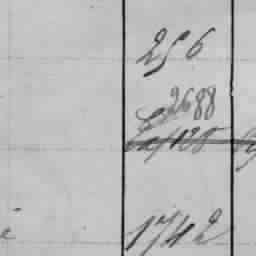 256
2688
1742